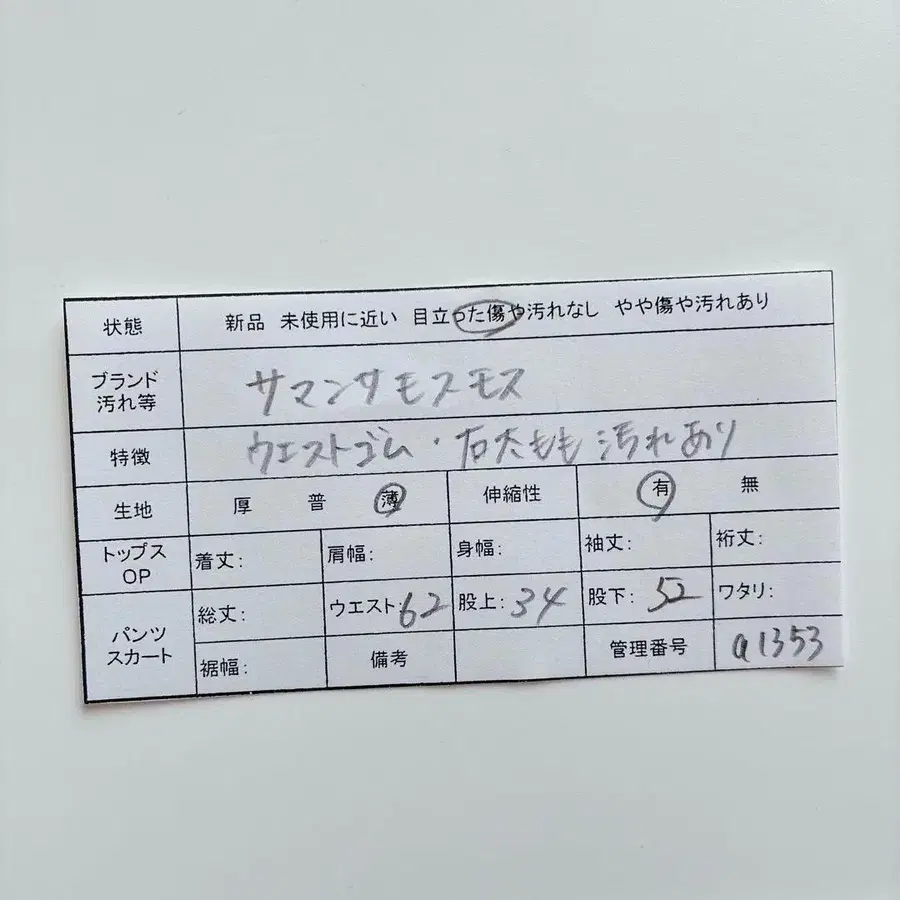 状態 新品 未使用に近い 目立った傷や汚れなし やや傷や汚れあり
ブランド
汚れ等
サマンサモスモス
特徴 ウエストゴム・右太もも汚れあり
生地 厚 普 薄 伸縮性 有 無
トップス
OP
着丈: 肩幅: 身幅: 袖丈: 裄丈:
パンツ
スカート
総丈: ウエスト:62 股上:34 股下:52 ワタリ:
裾幅: 備考 管理番号 a1353